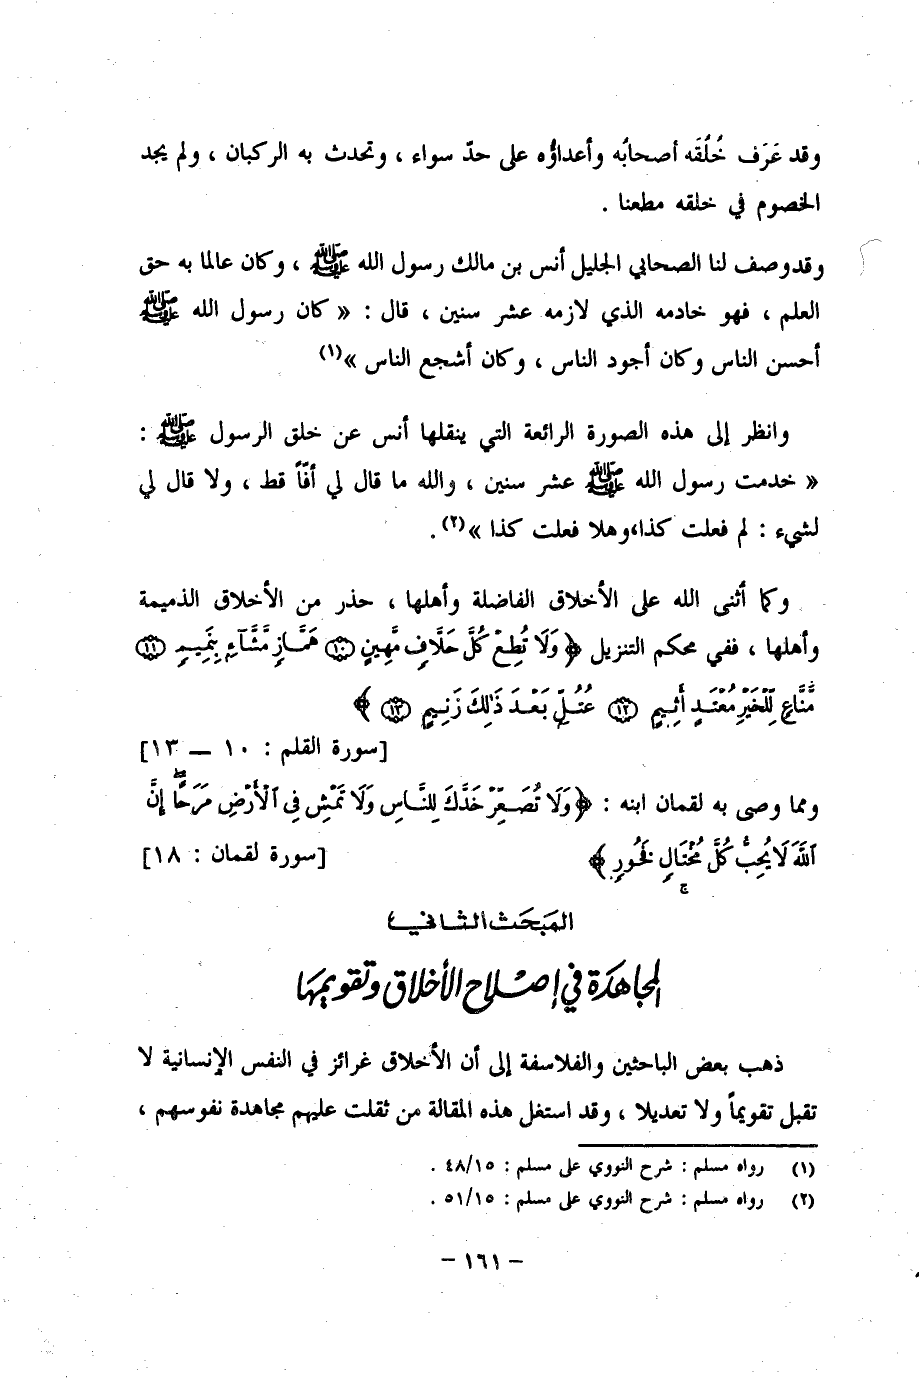 وقد عَرَف خُلُقَه أصحابُه وأعداؤُه على حدّ سواء ، وتحدث به الركبان ، ولم يجد
الخصوم في خلقه مطعنا .
وقدوصف لنا الصحابي الجليل أنس بن مالك رسول الله ﷺ ، وكان عالما به حق
العلم ، فهو خادمه الذي لازمه عشر سنين ، قال : « كان رسول الله ﷺ
أحسن الناس وكان أجود الناس ، وكان أشجع الناس »(١)
وانظر إلى هذه الصورة الرائعة التي ينقلها أنس عن خلق الرسول ﷺ :
« خدمت رسول الله ﷺ عشر سنين ، والله ما قال لي أفّاً قط ، ولا قال لي
لشيء : لم فعلت كذا،وهلا فعلت كذا »(٢) .
وكما أثنى الله على الأخلاق الفاضلة وأهلها ، حذر من الأخلاق الذميمة
وأهلها ، ففي محكم التنزيل ﴿ وَلَا تُطِعْ كُلَّ حَلَّافٍ مَّهِينٍ ١٠ هَمَّازٍ مَّشَّآءٍ بِنَمِيمٍ ١١
مَّنَّاعٍ لِّلْخَيْرِ مُعْتَدٍ أَثِيمٍ ١٢ عُتُلٍّ بَعْدَ ذَٰلِكَ زَنِيمٍ ١٣ ﴾
[سورة القلم : ١٠ — ١٣]
ومما وصى به لقمان ابنه : ﴿ وَلَا تُصَعِّرْ خَدَّكَ لِلنَّاسِ وَلَا تَمْشِ فِى الْأَرْضِ مَرَحًا ۖ إِنَّ
اللَّهَ لَا يُحِبُّ كُلَّ مُخْتَالٍ فَخُورٍ ﴾ [سورة لقمان : ١٨]
المَبحَث الثاني
المجاهدَة في إصلاح الأخلاق وتقويمها
ذهب بعض الباحثين والفلاسفة إلى أن الأخلاق غرائز في النفس الإنسانية لا
تقبل تقويماً ولا تعديلا ، وقد استغل هذه المقالة من ثقلت عليهم مجاهدة نفوسهم ،
(١) رواه مسلم : شرح النووي على مسلم : ٤٨/١٥ .
(٢) رواه مسلم : شرح النووي على مسلم : ٥١/١٥ .
– ١٦١ –